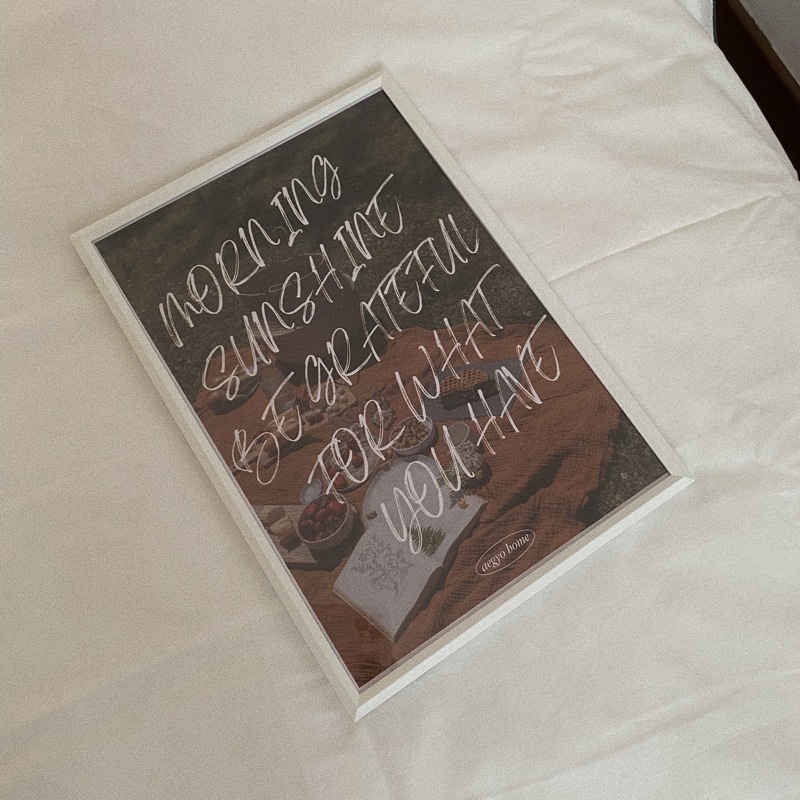 MORNING
SUNSHINE
BE GRATEFUL
FOR WHAT
YOU HAVE
aegyo home